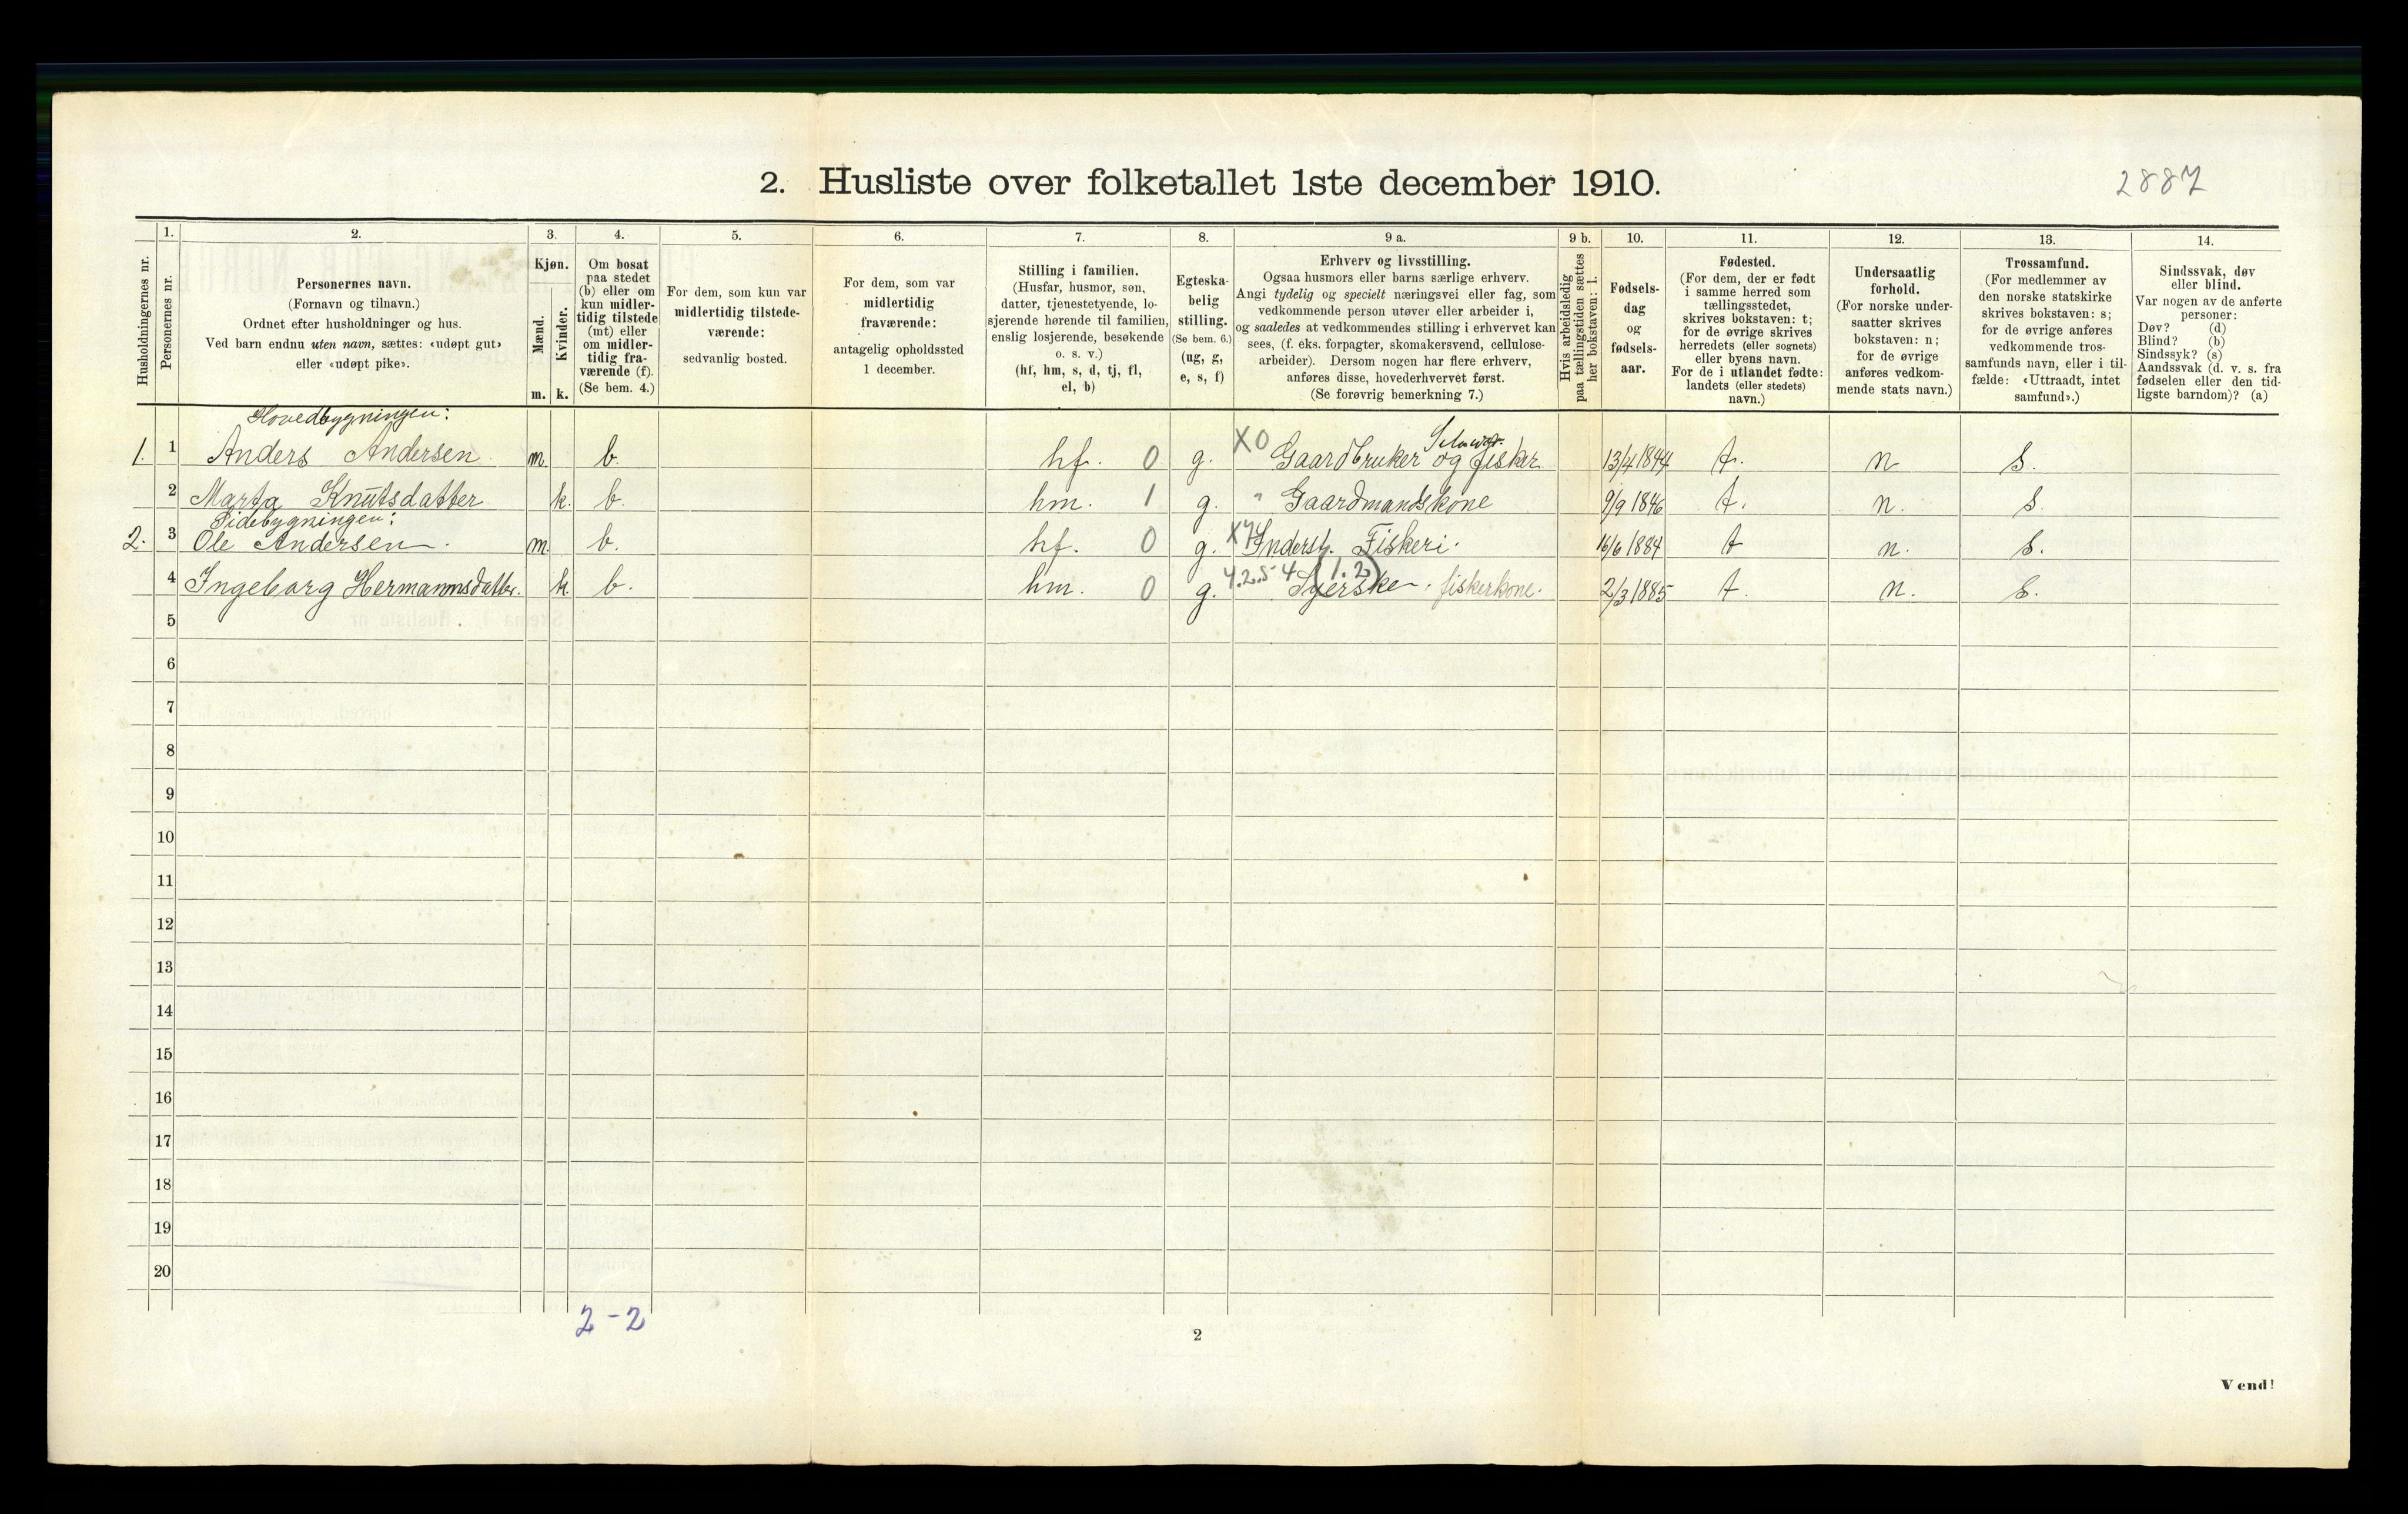 2. Husliste over folketallet 1ste december 1910.
2887
Husholdningernes nr.
1.
Personernes nr.
2.
Personernes navn.
(Fornavn og tilnavn.)
Ordnet efter husholdninger og hus.
Ved barn endnu uten navn, sættes: «udøpt gut»
eller «udøpt pike».
3.
Kjøn.
Mænd.
Kvinder.
m. k.
4.
Om bosat
paa stedet
(b) eller om
kun midler-
tidig tilstede
(mt) eller
om midler-
tidig fra-
værende (f).
(Se bem. 4.)
5.
For dem, som kun var
midlertidig tilstede-
værende:
sedvanlig bosted.
6.
For dem, som var
midlertidig
fraværende:
antagelig opholdssted
1 december.
7.
Stilling i familien.
(Husfar, husmor, søn,
datter, tjenestetyende, lo-
sjerende hørende til familien,
enslig losjerende, besøkende
o. s. v.)
(hf, hm, s, d, tj, fl,
el, b)
8.
Egteska-
belig
stilling.
(Se bem. 6.)
(ug, g,
e, s, f)
9 a.
Erhverv og livsstilling.
Ogsaa husmors eller barns særlige erhverv.
Angi tydelig og specielt næringsvei eller fag, som
vedkommende person utøver eller arbeider i,
og saaledes at vedkommendes stilling i erhvervet kan
sees, (f. eks. forpagter, skomakersvend, cellulose-
arbeider). Dersom nogen har flere erhverv,
anføres disse, hovederhvervet først.
(Se forøvrig bemerkning 7.)
9 b.
Hvis arbeidsledig
paa tællingstiden sættes
her bokstaven: l.
10.
Fødsels-
dag
og
fødsels-
aar.
11.
Fødested.
(For dem, der er født
i samme herred som
tællingsstedet,
skrives bokstaven: t;
for de øvrige skrives
herredets (eller sognets)
eller byens navn.
For de i utlandet fødte:
landets (eller stedets)
navn.)
12.
Undersaatlig
forhold.
(For norske under-
saatter skrives
bokstaven: n;
for de øvrige
anføres vedkom-
mende stats navn.)
13.
Trossamfund.
(For medlemmer av
den norske statskirke
skrives bokstaven: s;
for de øvrige anføres
vedkommende tros-
samfunds navn, eller i til-
fælde: «Uttraadt, intet
samfund».)
14.
Sindssvak, døv
eller blind.
Var nogen av de anførte
personer:
Døv? (d)
Blind? (b)
Sindssyk? (s)
Aandssvak (d. v. s. fra
fødselen eller den tid-
ligste barndom)? (a)
Hovedbygningen:
1. 1 Anders Andersen m. b. hf. 0 g. X0 Gaardbruker og fisker 13/4 1844 t. n s.
2 Marta Knutsdatter k. b. hm. 1 g. " Gaardmandskone 9/9 1846 t. n. s.
Sidebygningen:
2. 3 Ole Andersen. m. b. hf. 0 g. X4 Inderst. Fiskeri. 16/6 1884 t n. s.
4 Ingeborg Hermannsdatter. k. b. hm. 0 g. 4.2.5-4 (1.2) Syerske. fiskerkone. 2/3 1885 t. n. s.
5
6
7
8
9
10
11
12
13
14
15
16
17
18
19
20
2-2
2
Vend!